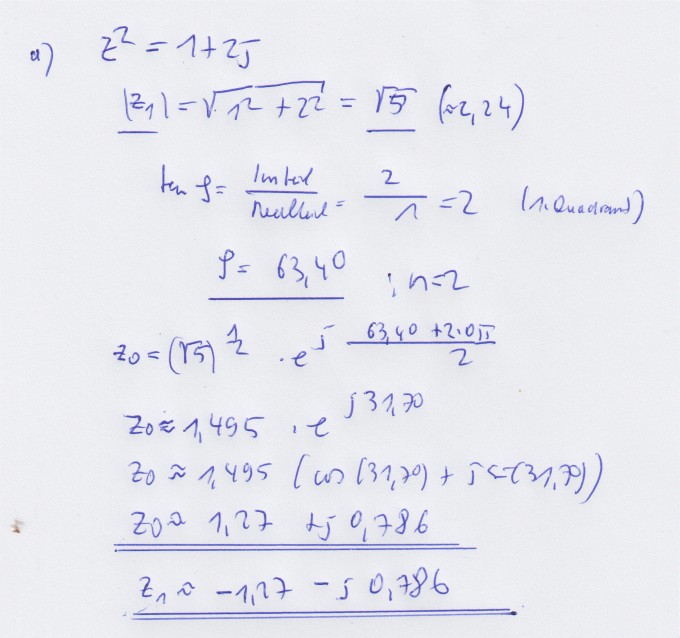 a) z² = 1+2j
|z₁| = √(1² + 2²) = √5 (≈2,24)
tan φ = Imteil / Realteil = 2 / 1 = 2 (1. Quadrant)
φ = 63,40 ; n=2
z₀ = (√5)^(1/2) · e^(j (63,40 + 2·0π)/2)
z₀ ≈ 1,495 · e^(j31,70)
z₀ ≈ 1,495 (cos (31,70) + j sin(31,70))
z₀ ≈ 1,27 + j 0,786
z₁ ≈ -1,27 - j 0,786